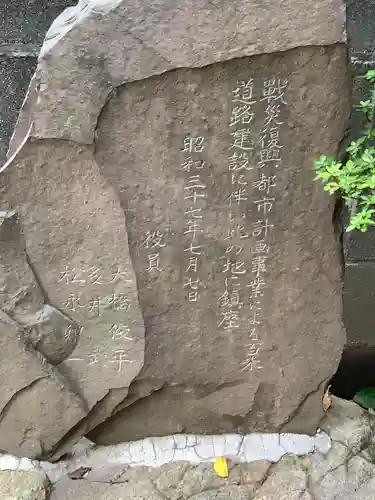 戰災復興都市計画事業による墓
道路建設に伴い此の地に鎮座
昭和三十七年七月七日
役員
大橋俊平
井
松永
一